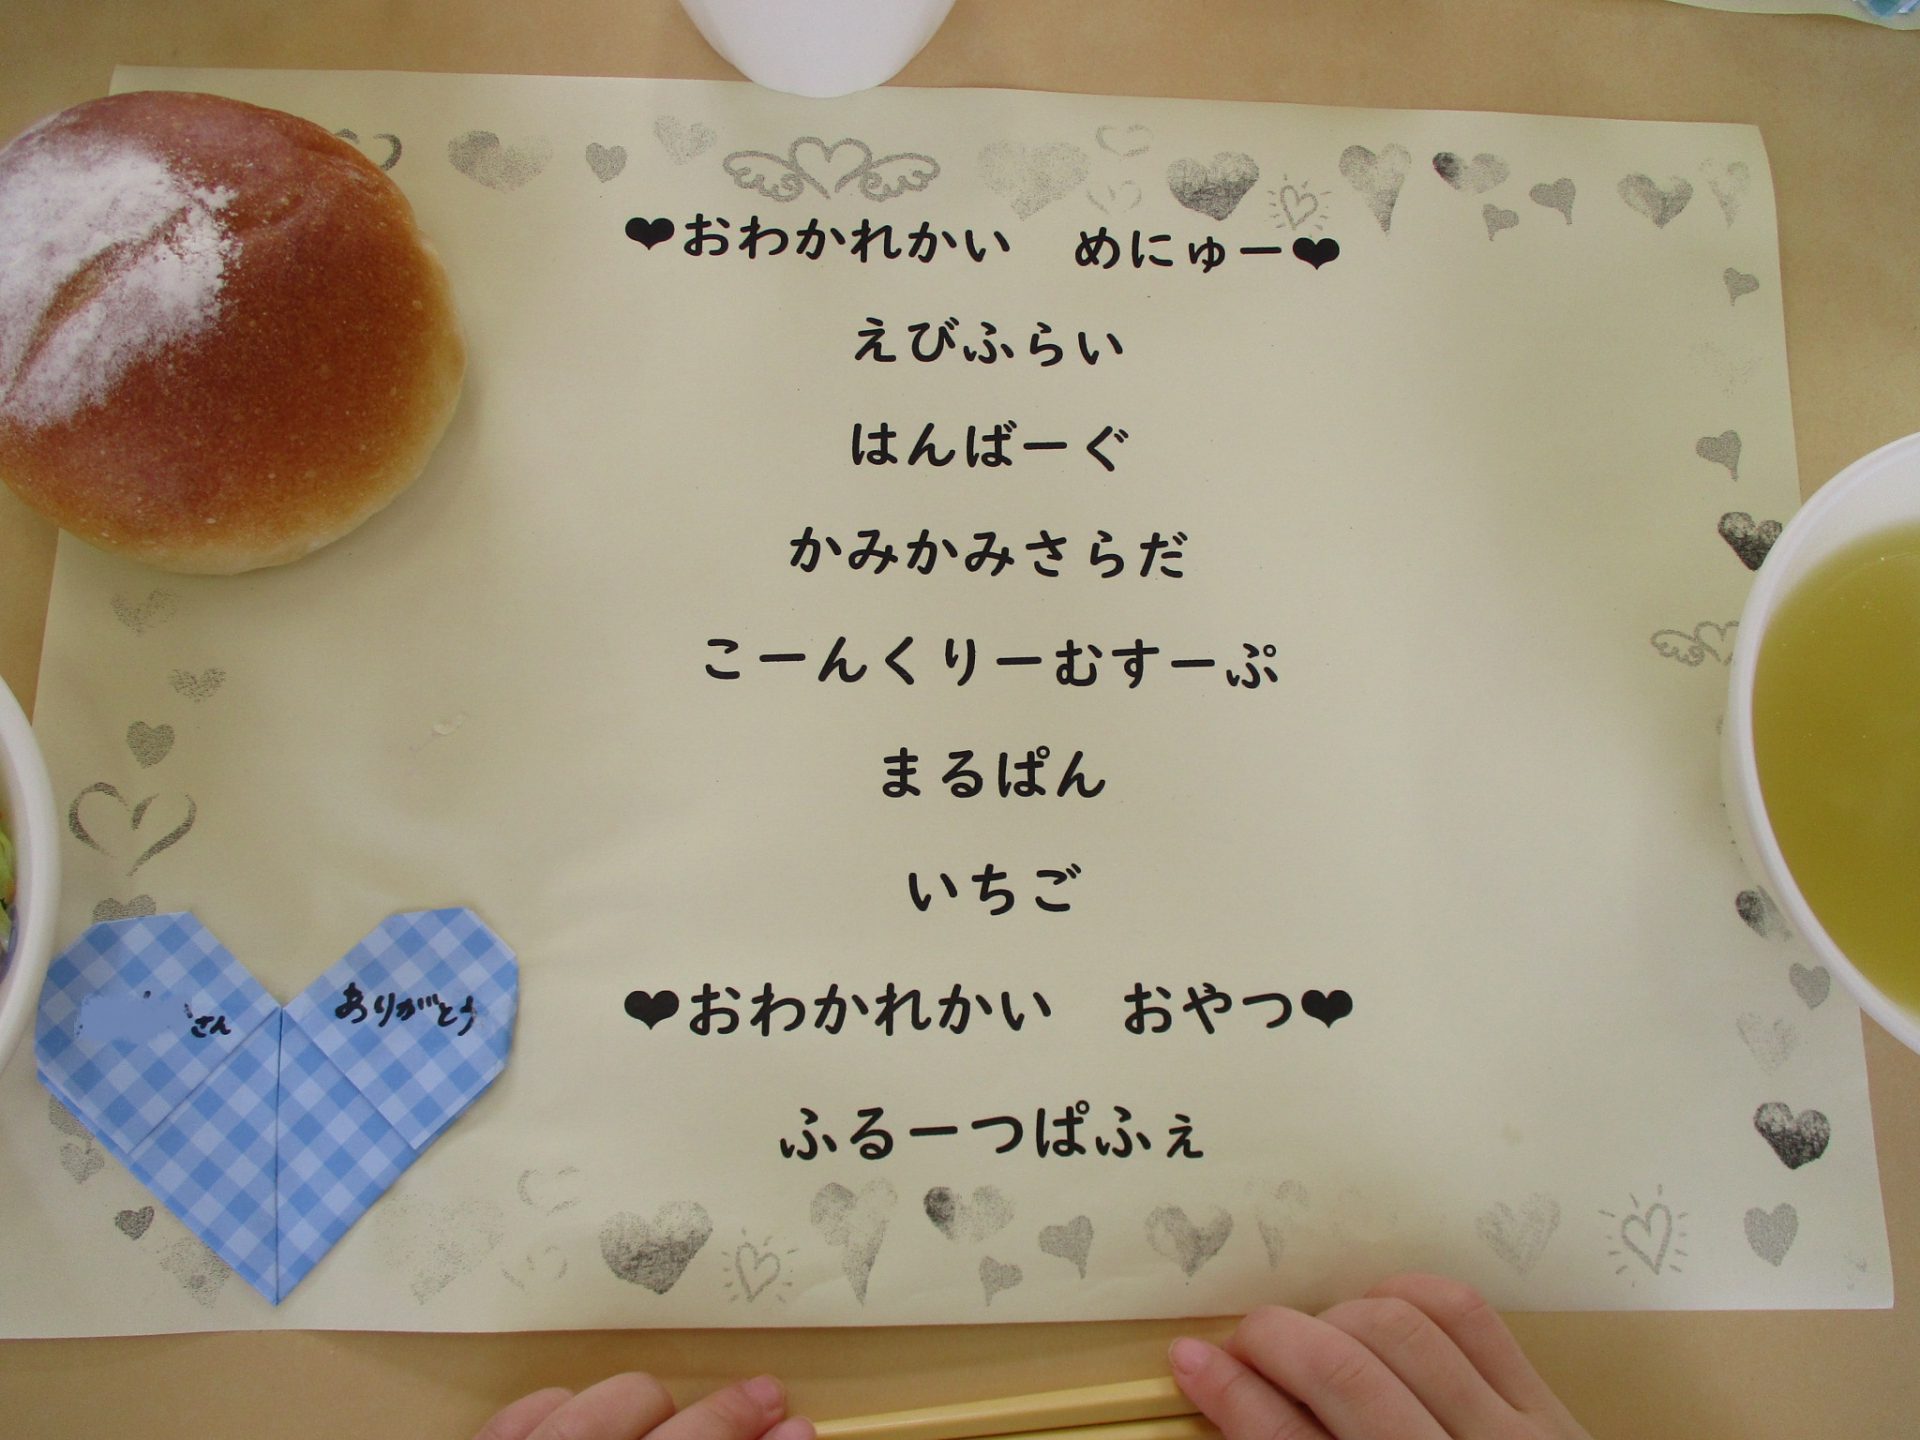 ❤おわかれかい　めにゅー❤
えびふらい
はんばーぐ
かみかみさらだ
こーんくりーむすーぷ
まるぱん
いちご
❤おわかれかい　おやつ❤
ふるーつぱふぇ
さん
ありがとう